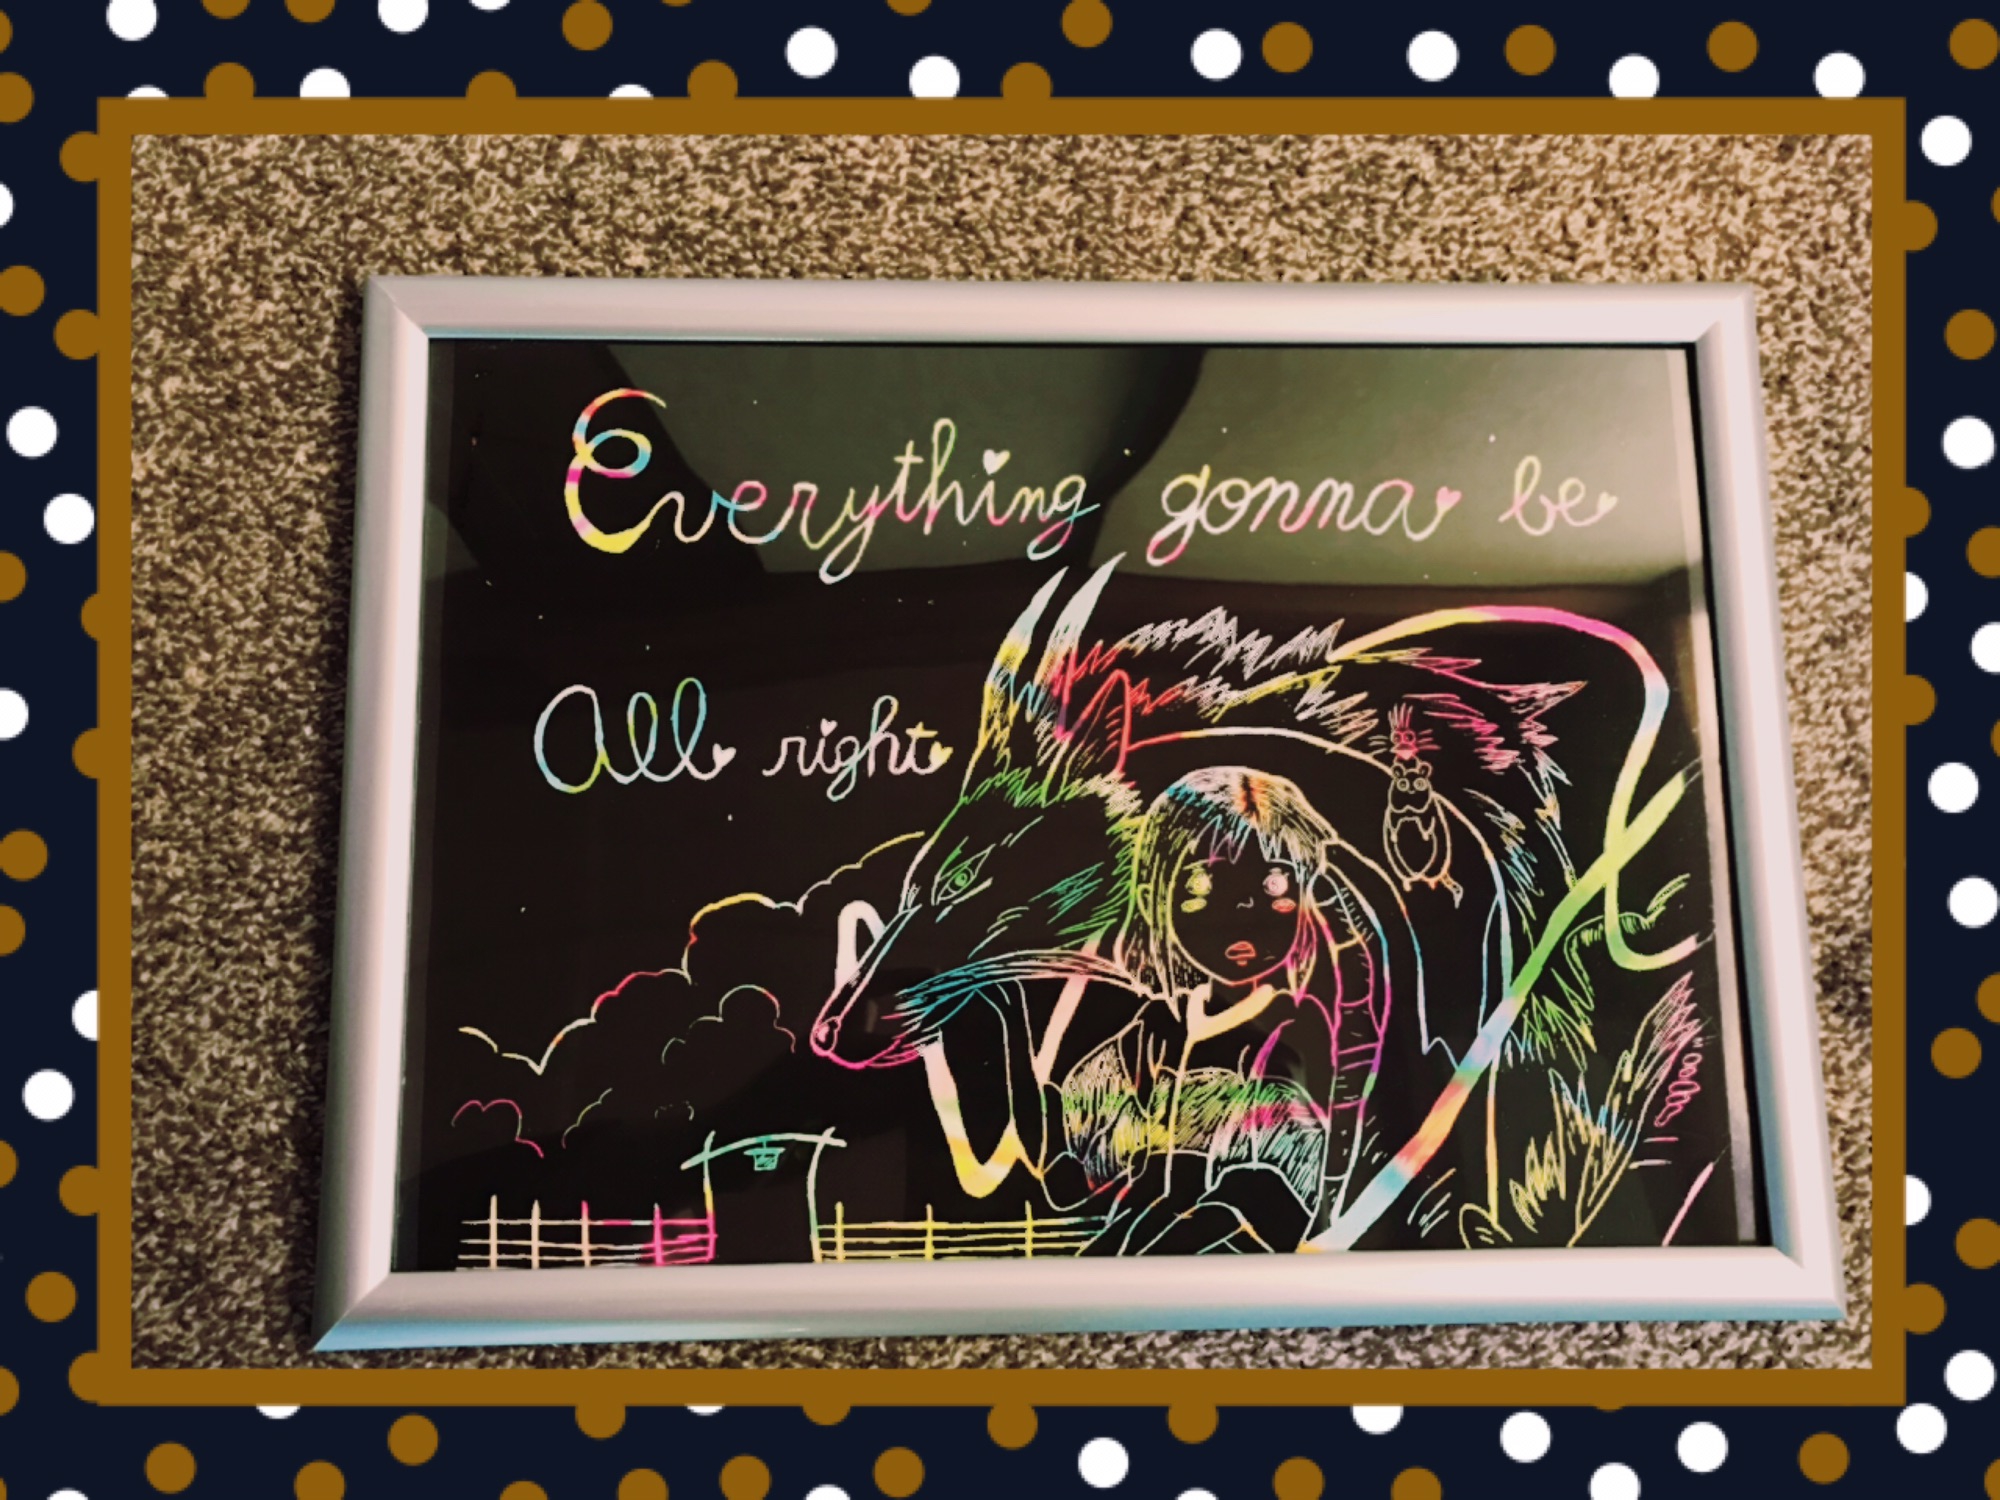 Everything gonna be
All right